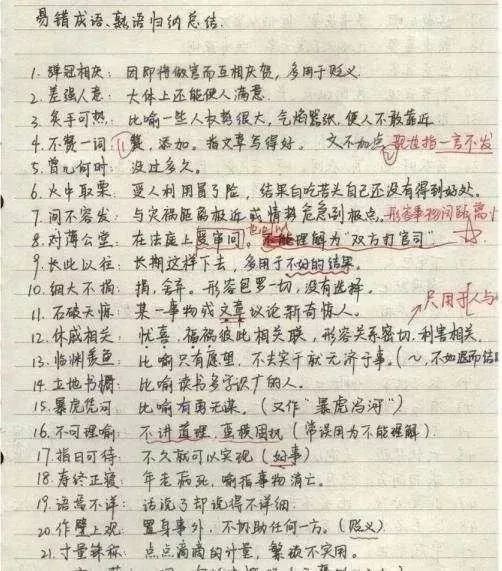 易错成语、熟语归纳总结.
1. 弹冠相庆: 因即将做官而互相庆贺, 多用于贬义.
2. 差强人意: 大体上还能使人满意.
3. 炙手可热: 比喻一些人权势很大, 气焰嚣张, 使人不敢靠近
4. 不赞一词: ⑴赞, 添加. 指文章写得好. 文不加点 ⑵现在指一言不发
5. 曾几何时: 没过多久.
6. 火中取栗: 受人利用冒了险, 结果白吃苦头自己还没有得到好处.
7. 间不容发: 与灾祸距离极近或情势危急到极点. 形容事物间距离小
8. 对薄公堂: 在法庭上受审问. 也可以理解为“双方打官司”
9. 长此以往: 长期这样下去, 多用于不好的结果.
10. 细大不捐: 捐, 舍弃. 形容包罗一切, 没有选择.
11. 石破天惊: 某一事物或文章议论新奇惊人.
只用于人与
12. 休戚相关: 忧喜, 福祸彼此相关联, 形容关系密切, 利害相关.
13. 临渊羡鱼: 比喻只有愿望, 不去实干就无济于事. (~, 不如退而结
14. 立地书橱: 比喻读书多学识广的人.
15. 暴虎凭河: 比喻有勇无谋. (又作“暴虎冯河”)
16. 不可理喻: 不讲道理, 蛮横固执 (常误用为不能理解).
17. 指日可待: 不久就可以实现 (好事)
18. 寿终正寝: 年老病死, 喻指事物消亡.
19. 语焉不详: 话说了却说得不详细.
20. 作壁上观: 置身事外, 不协助任何一方. (贬义)
21. 寸量铢称: 点点滴滴的计量, 繁琐不实用.